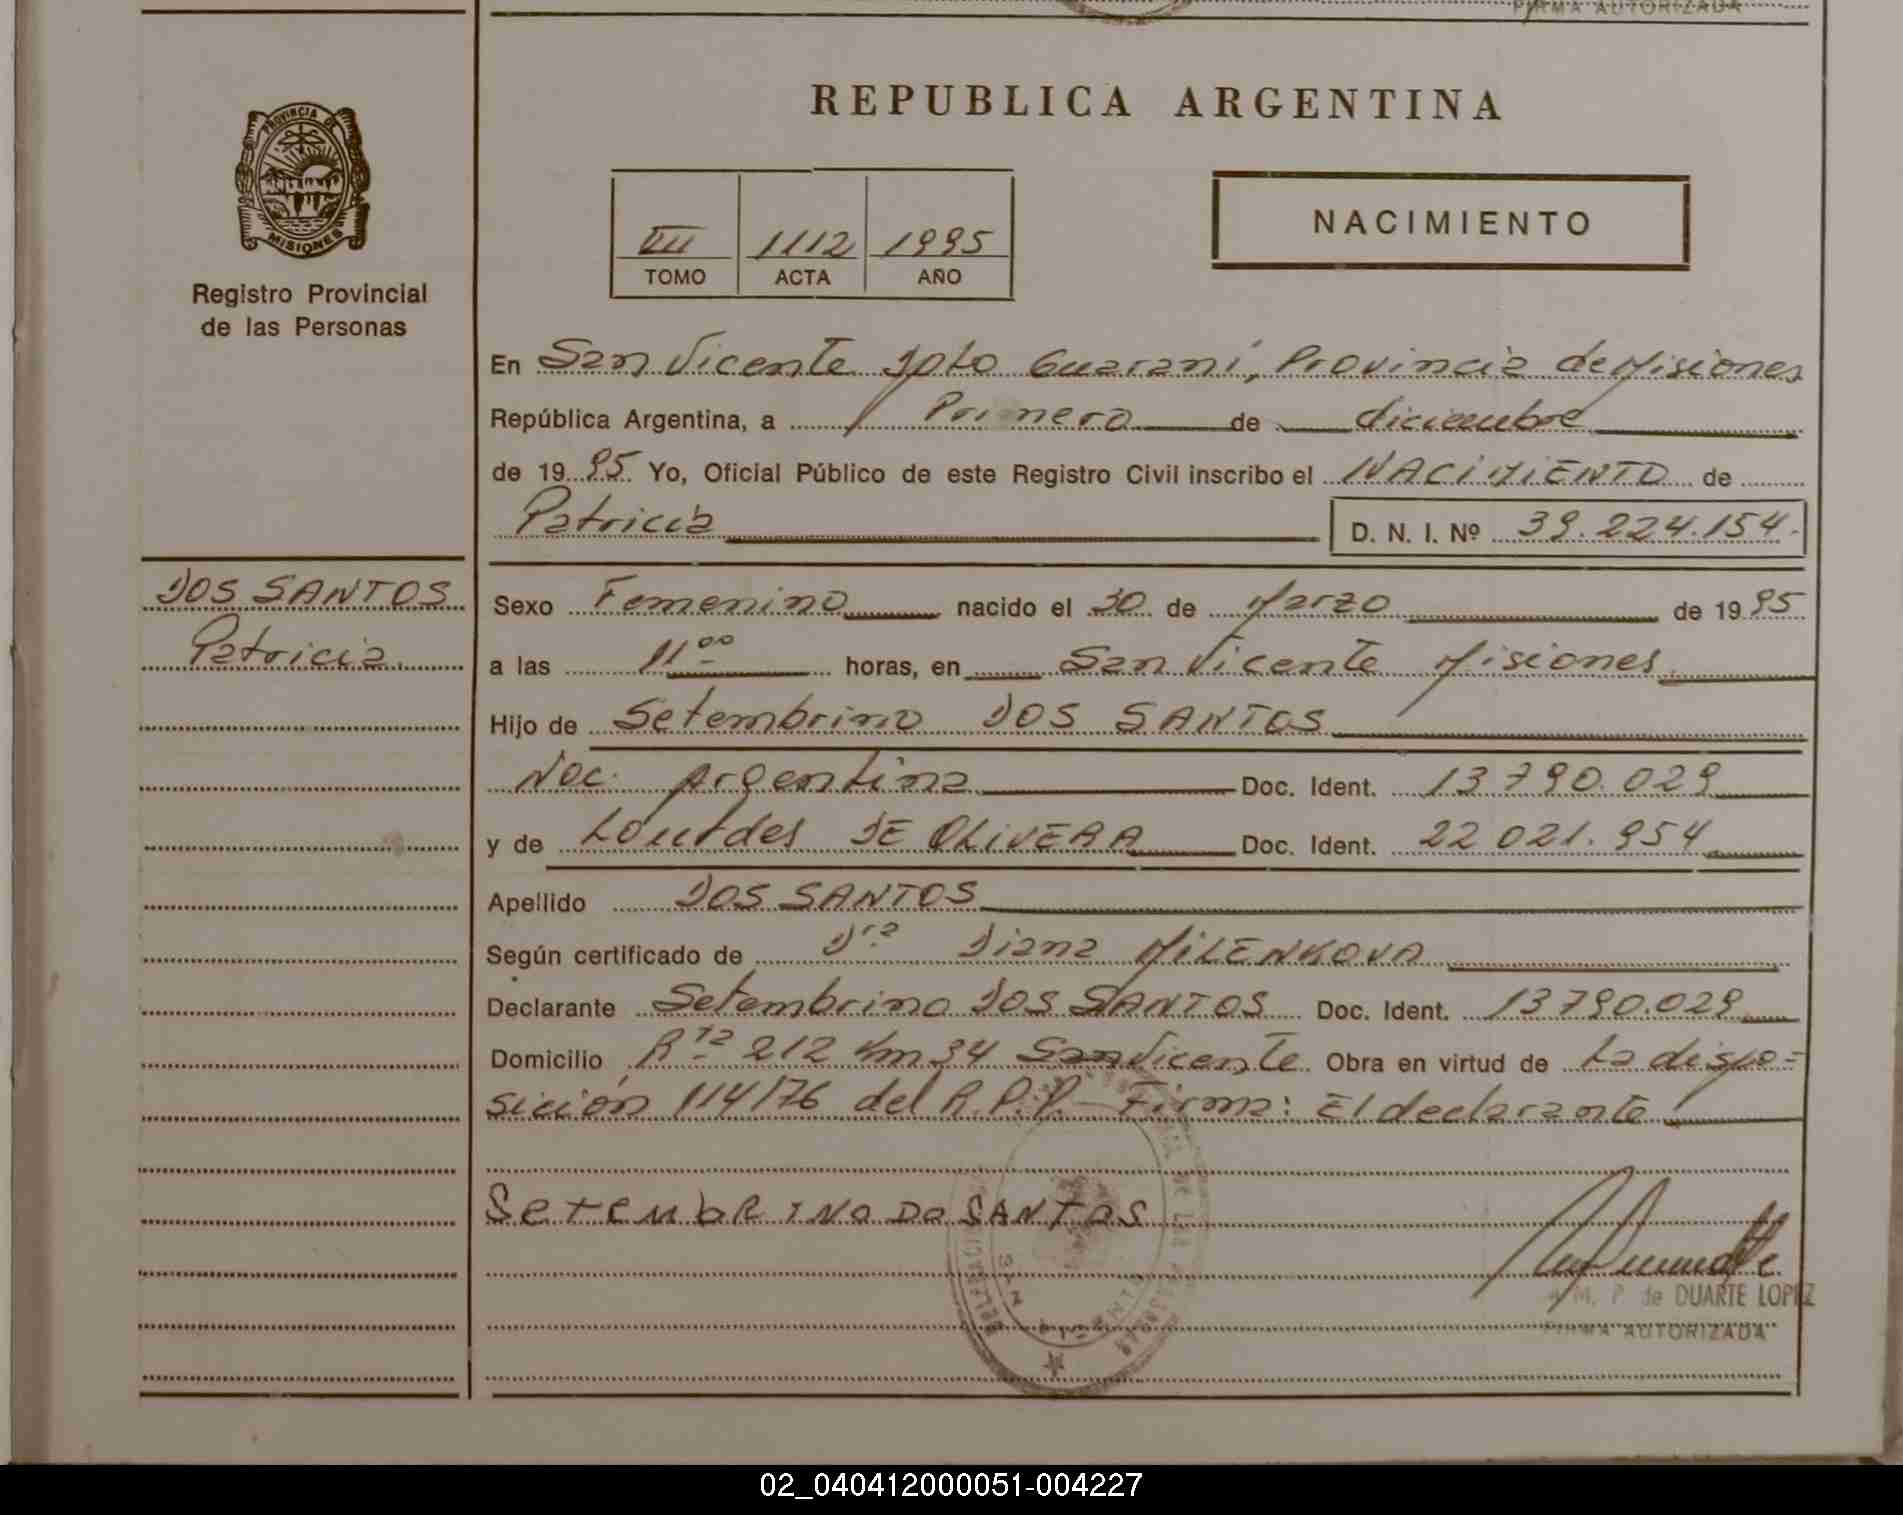 FIRMA AUTORIZADA
PROVINCIA DE
MISIONES
Registro Provincial
de las Personas
REPUBLICA ARGENTINA
III 1112 1995
TOMO ACTA AÑO
NACIMIENTO
En San Vicente Dpto Guaraní, Provincia de Misiones
República Argentina, a Primero de diciembre
de 1995 Yo, Oficial Público de este Registro Civil inscribo el NACIMIENTO de
Patricia D. N. I. Nº 39.224.154.
DOS SANTOS
Patricia
Sexo Femenino nacido el 30 de Marzo de 1995
a las 11 00 horas, en San Vicente Misiones
Hijo de Setembrino DOS SANTOS
Nac. Argentina Doc. Ident. 13 790.029
y de Lourdes DE OLIVERA Doc. Ident. 22 021.954
Apellido DOS SANTOS
Según certificado de Dra Diana MILENKOVA
Declarante Setembrino DOS SANTOS Doc. Ident. 13790.029
Domicilio Rta 212 Km 34 San Vicente Obra en virtud de La dispo=
sición 114/76 del R.P.P. Firma: El declarante
SeTEMbRINO DO SANTOS
M. P. de DUARTE LOPEZ
FIRMA AUTORIZADA
02_040412000051-004227